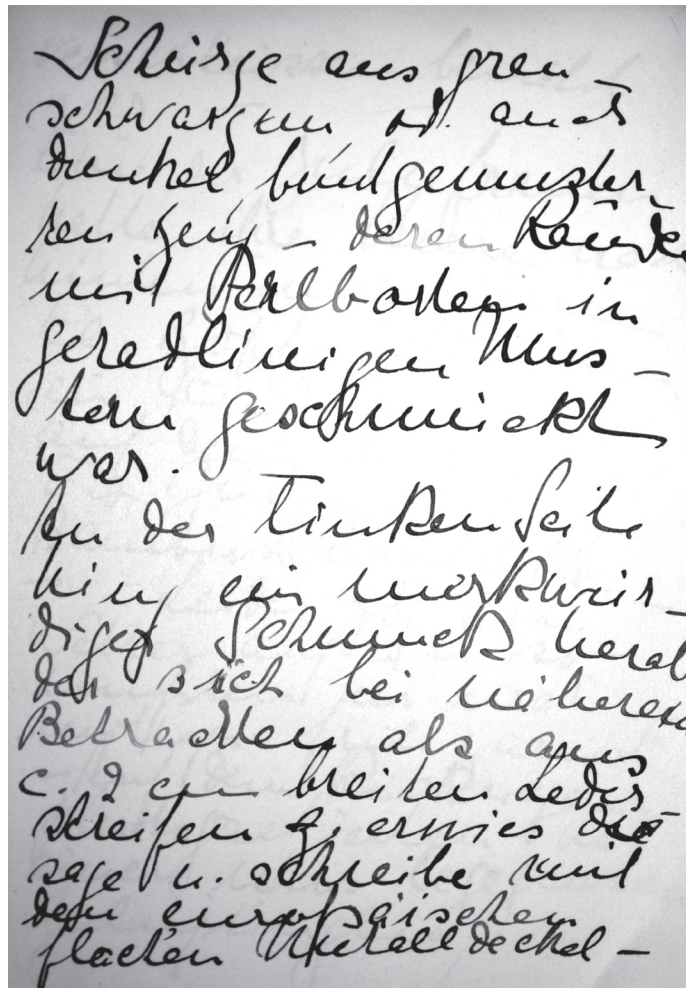 Schürze aus grau-
schwarzem od. auch
dunkel buntgemuster-
ten Zeug - deren Ränder
mit Perlborten in
geradlinigen Mus-
tern geschmückt
war.
An der linken Seite
hing ein merkwür-
diger Schmuck herab
der sich bei näherem
Betrachten als aus
c. 2 cm breiten Leder
streifen erwies die
sage u. schreibe mit
den europäischen
flachen Metalldeckel-